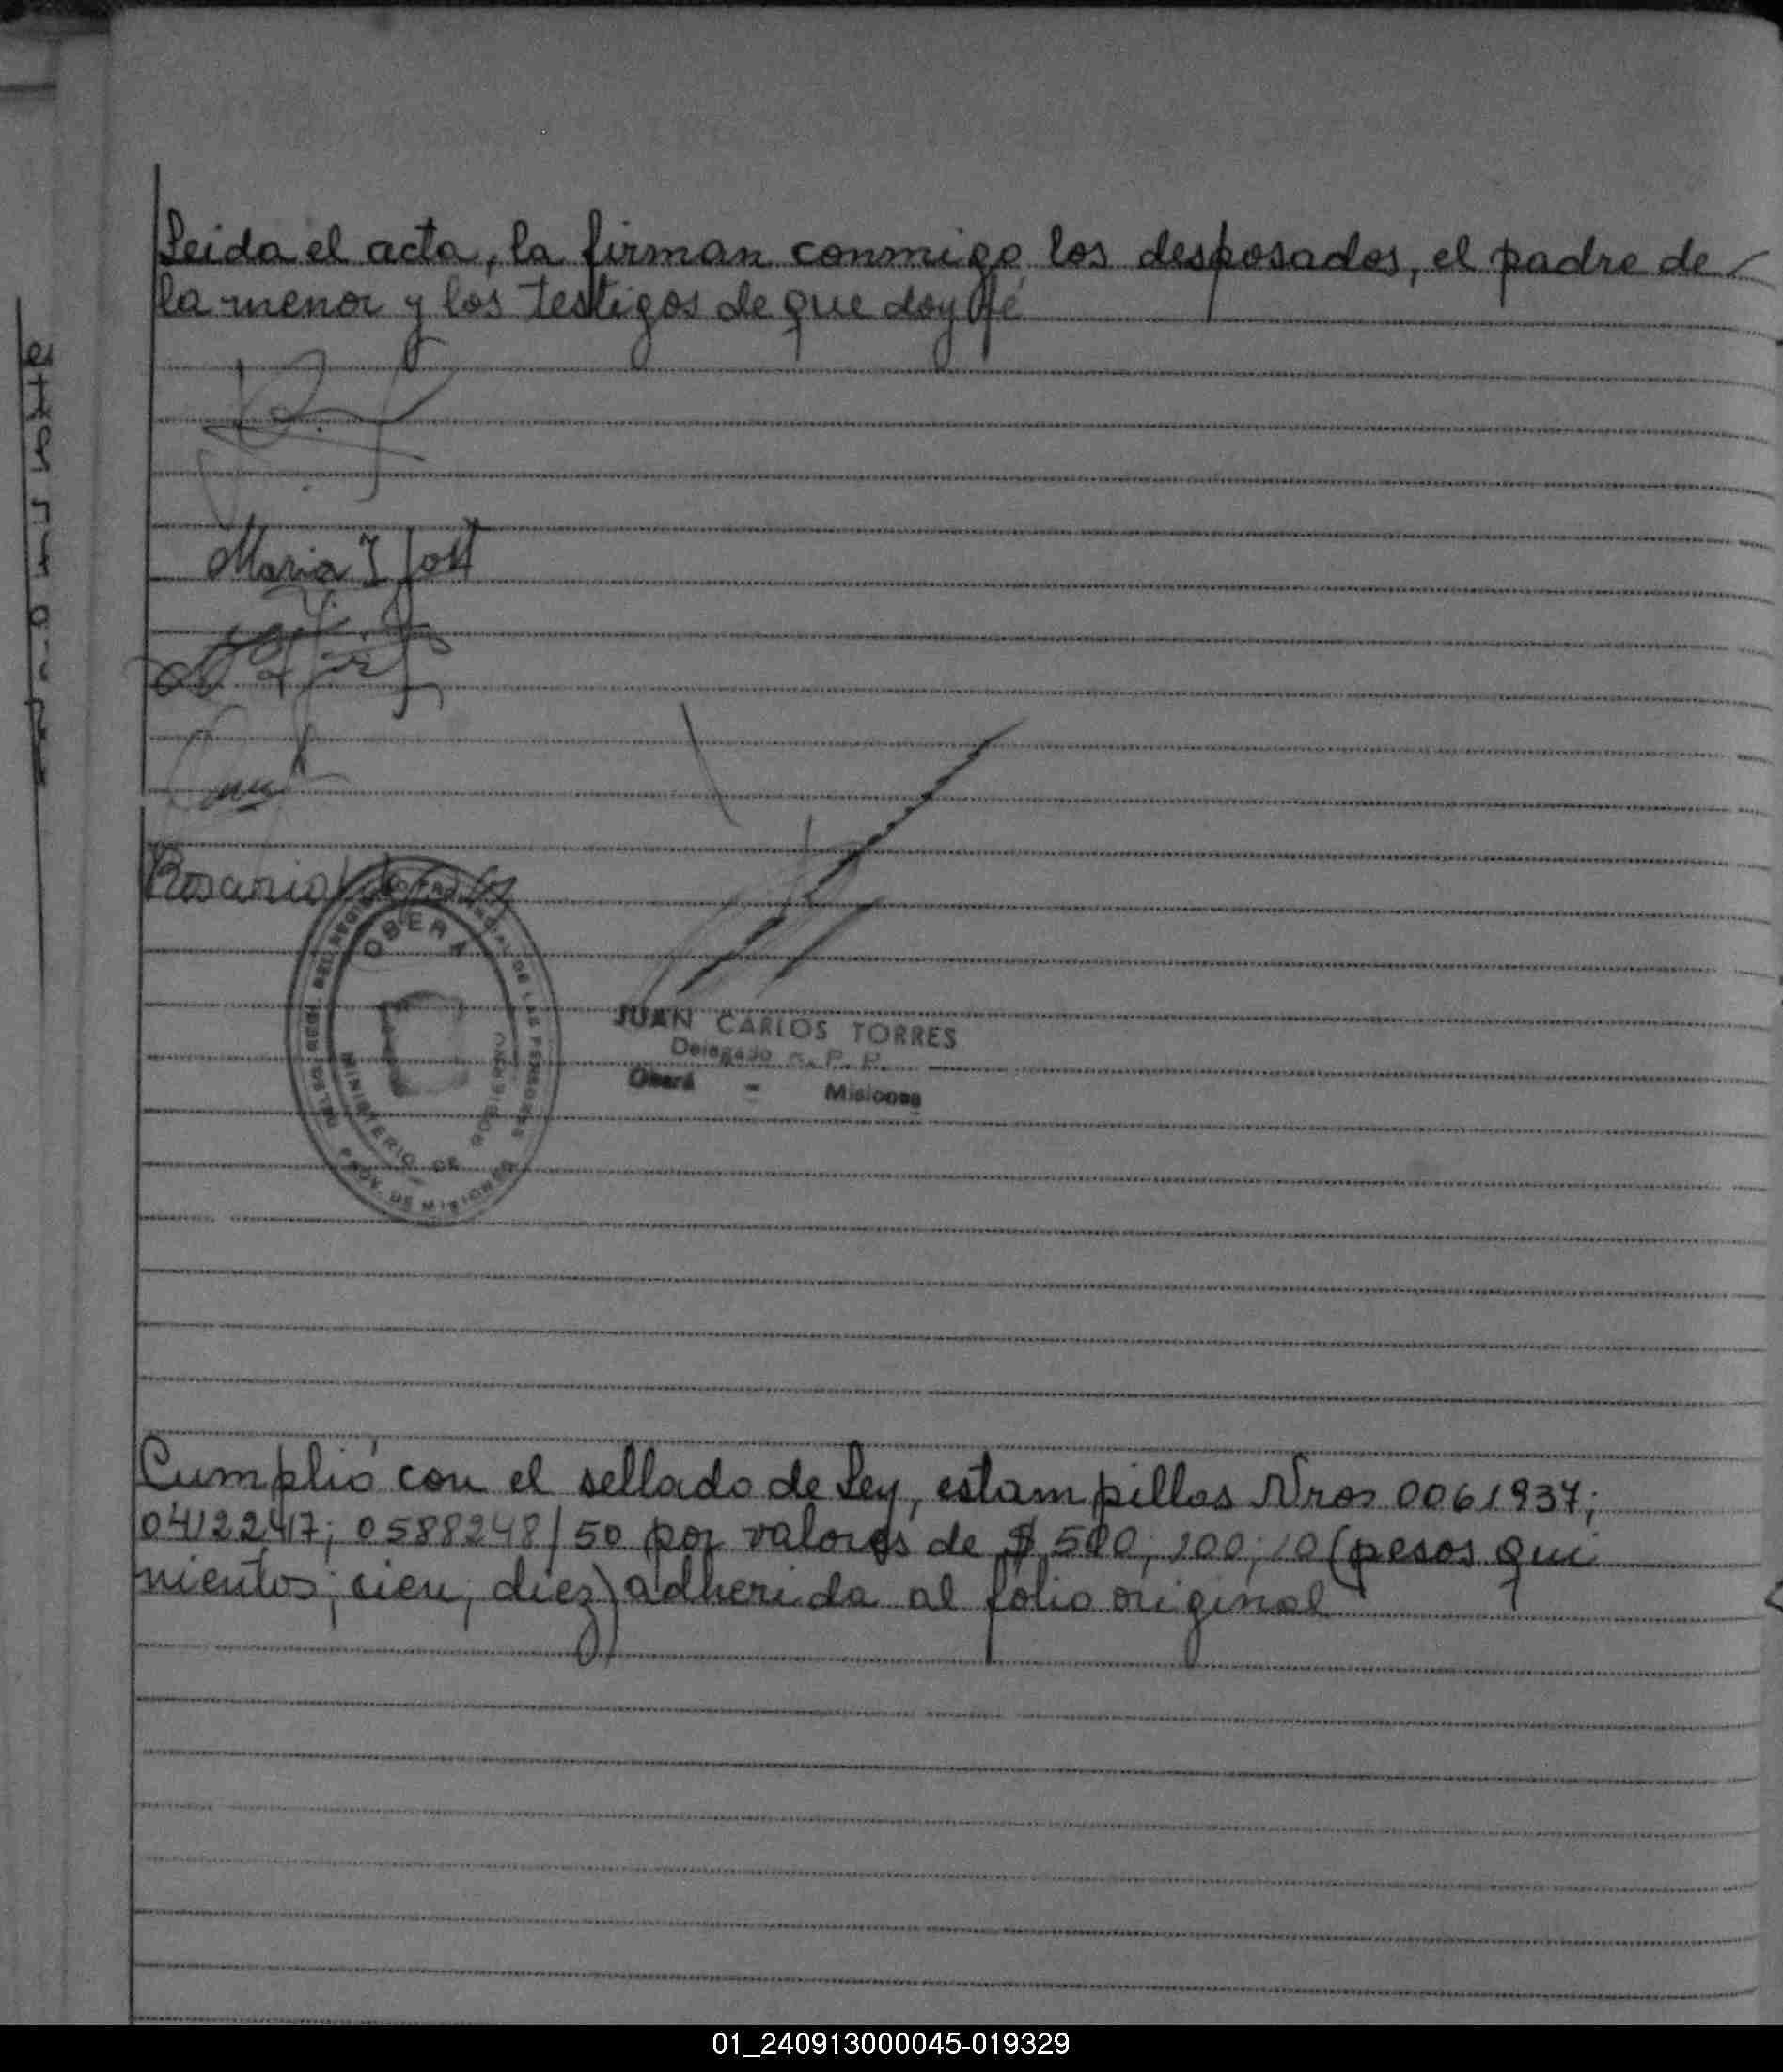 Leida el acta, la firman conmigo los desposados, el padre de
la menor y los testigos de que doy fé
Maria
Rosario
OBERA
MINISTERIO DE GOBIERNO
PROV. DE MISIONES
JUAN CARLOS TORRES
Delegado R. P. P.
Oberá - Misiones
Cumplió con el sellado de Ley, estampillas Nros 0061937;
04122417; 0588248/50 por valores de $ 500; 100; 10 (pesos qui
nientos; cien; diez) adherida al folio original
01_240913000045-019329